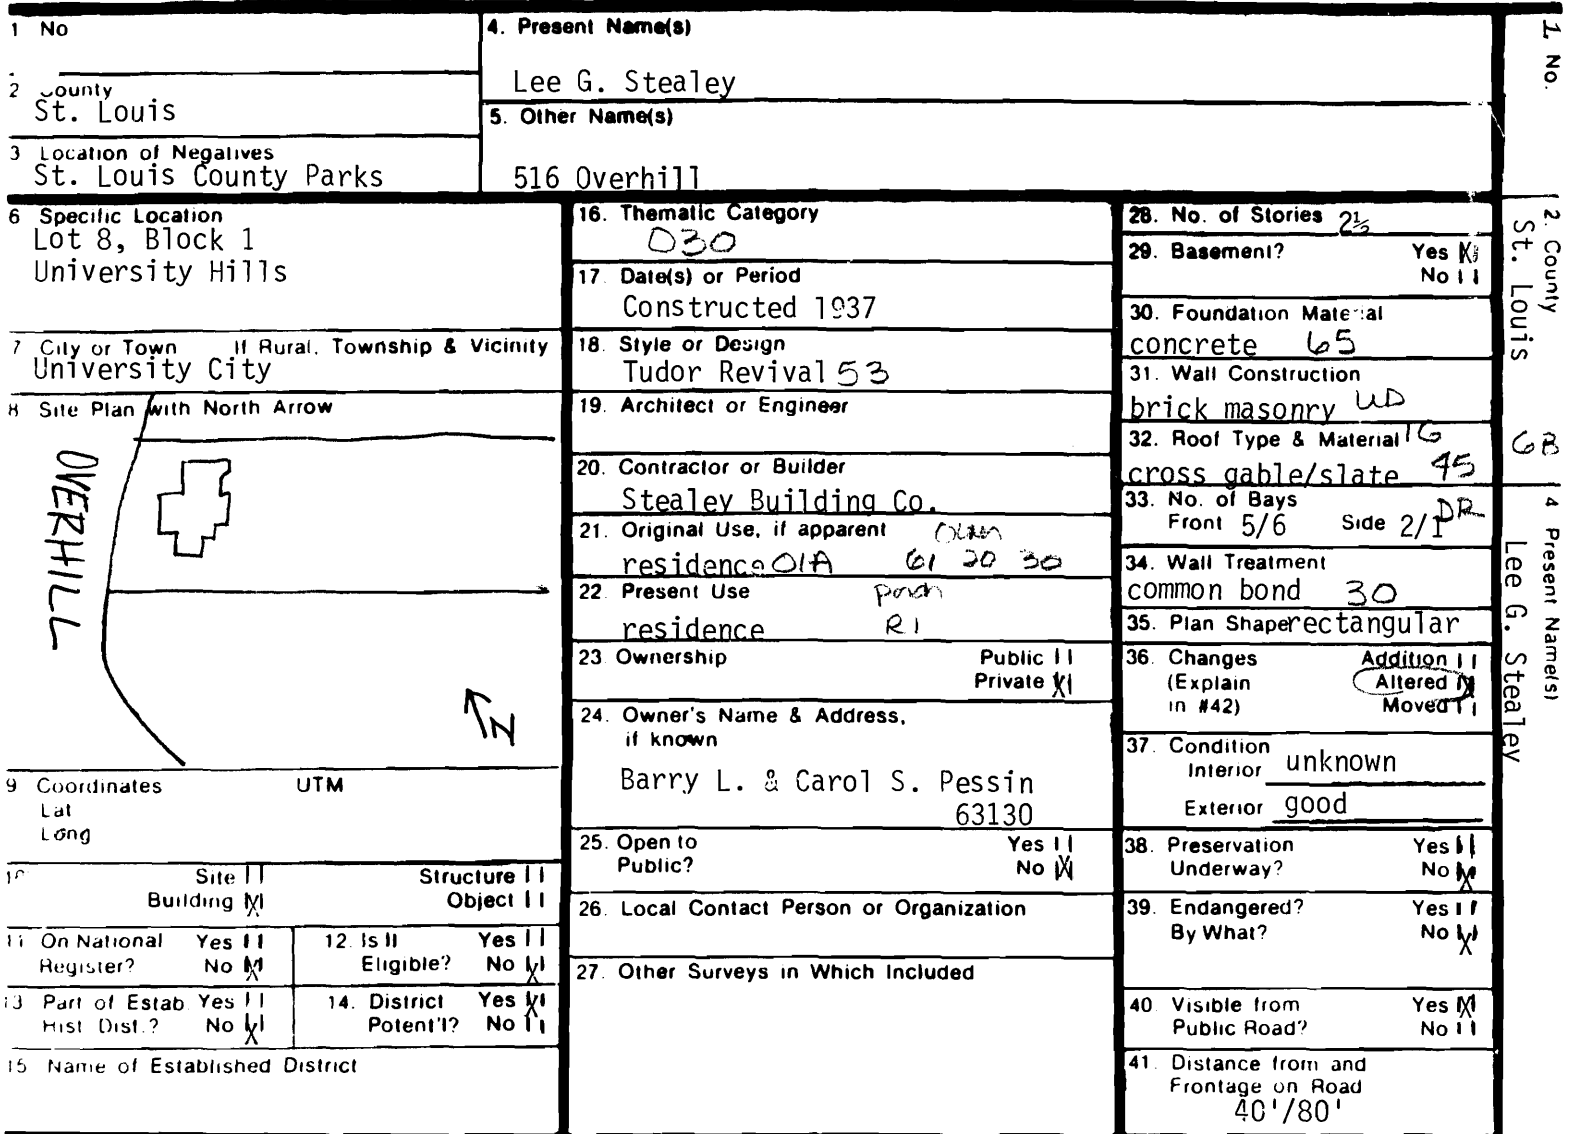 1 No
2 County
St. Louis
3 Location of Negatives
St. Louis County Parks
4. Present Name(s)
Lee G. Stealey
5. Other Name(s)
516 Overhill
6 Specific Location
Lot 8, Block 1
University Hills
7 City or Town If Rural, Township & Vicinity
University City
8 Site Plan with North Arrow
OVERHILL
N
9 Coordinates UTM
Lat
Long
10 Site Structure
Building X Object
11 On National Yes
Register? No X
12. Is It Yes
Eligible? No X
13 Part of Estab Yes
Hist Dist.? No X
14. District Yes X
Potent'l? No
15 Name of Established District
16. Thematic Category
030
17. Date(s) or Period
Constructed 1937
18. Style or Design
Tudor Revival 53
19. Architect or Engineer
20. Contractor or Builder
Stealey Building Co.
21. Original Use, if apparent
residence 01A 61 20 30
22. Present Use porch
residence R1
23 Ownership Public
Private X
24. Owner's Name & Address,
if known
Barry L. & Carol S. Pessin
63130
25. Open to Yes
Public? No X
26. Local Contact Person or Organization
27. Other Surveys in Which Included
28. No. of Stories 2½
29. Basement? Yes X
No
30. Foundation Material
concrete 65
31. Wall Construction
brick masonry UD
32. Roof Type & Material 1G
cross gable/slate 45
33. No. of Bays DR
Front 5/6 Side 2/1
34. Wall Treatment
common bond 30
35. Plan Shape rectangular
36. Changes Addition
(Explain Altered X
in #42) Moved
37. Condition
Interior unknown
Exterior good
38. Preservation Yes
Underway? No X
39. Endangered? Yes
By What? No X
40. Visible from Yes X
Public Road? No
41. Distance from and
Frontage on Road
40'/80'
1. No.
2. County
St. Louis
6B
4 Present Name(s)
Lee G. Stealey